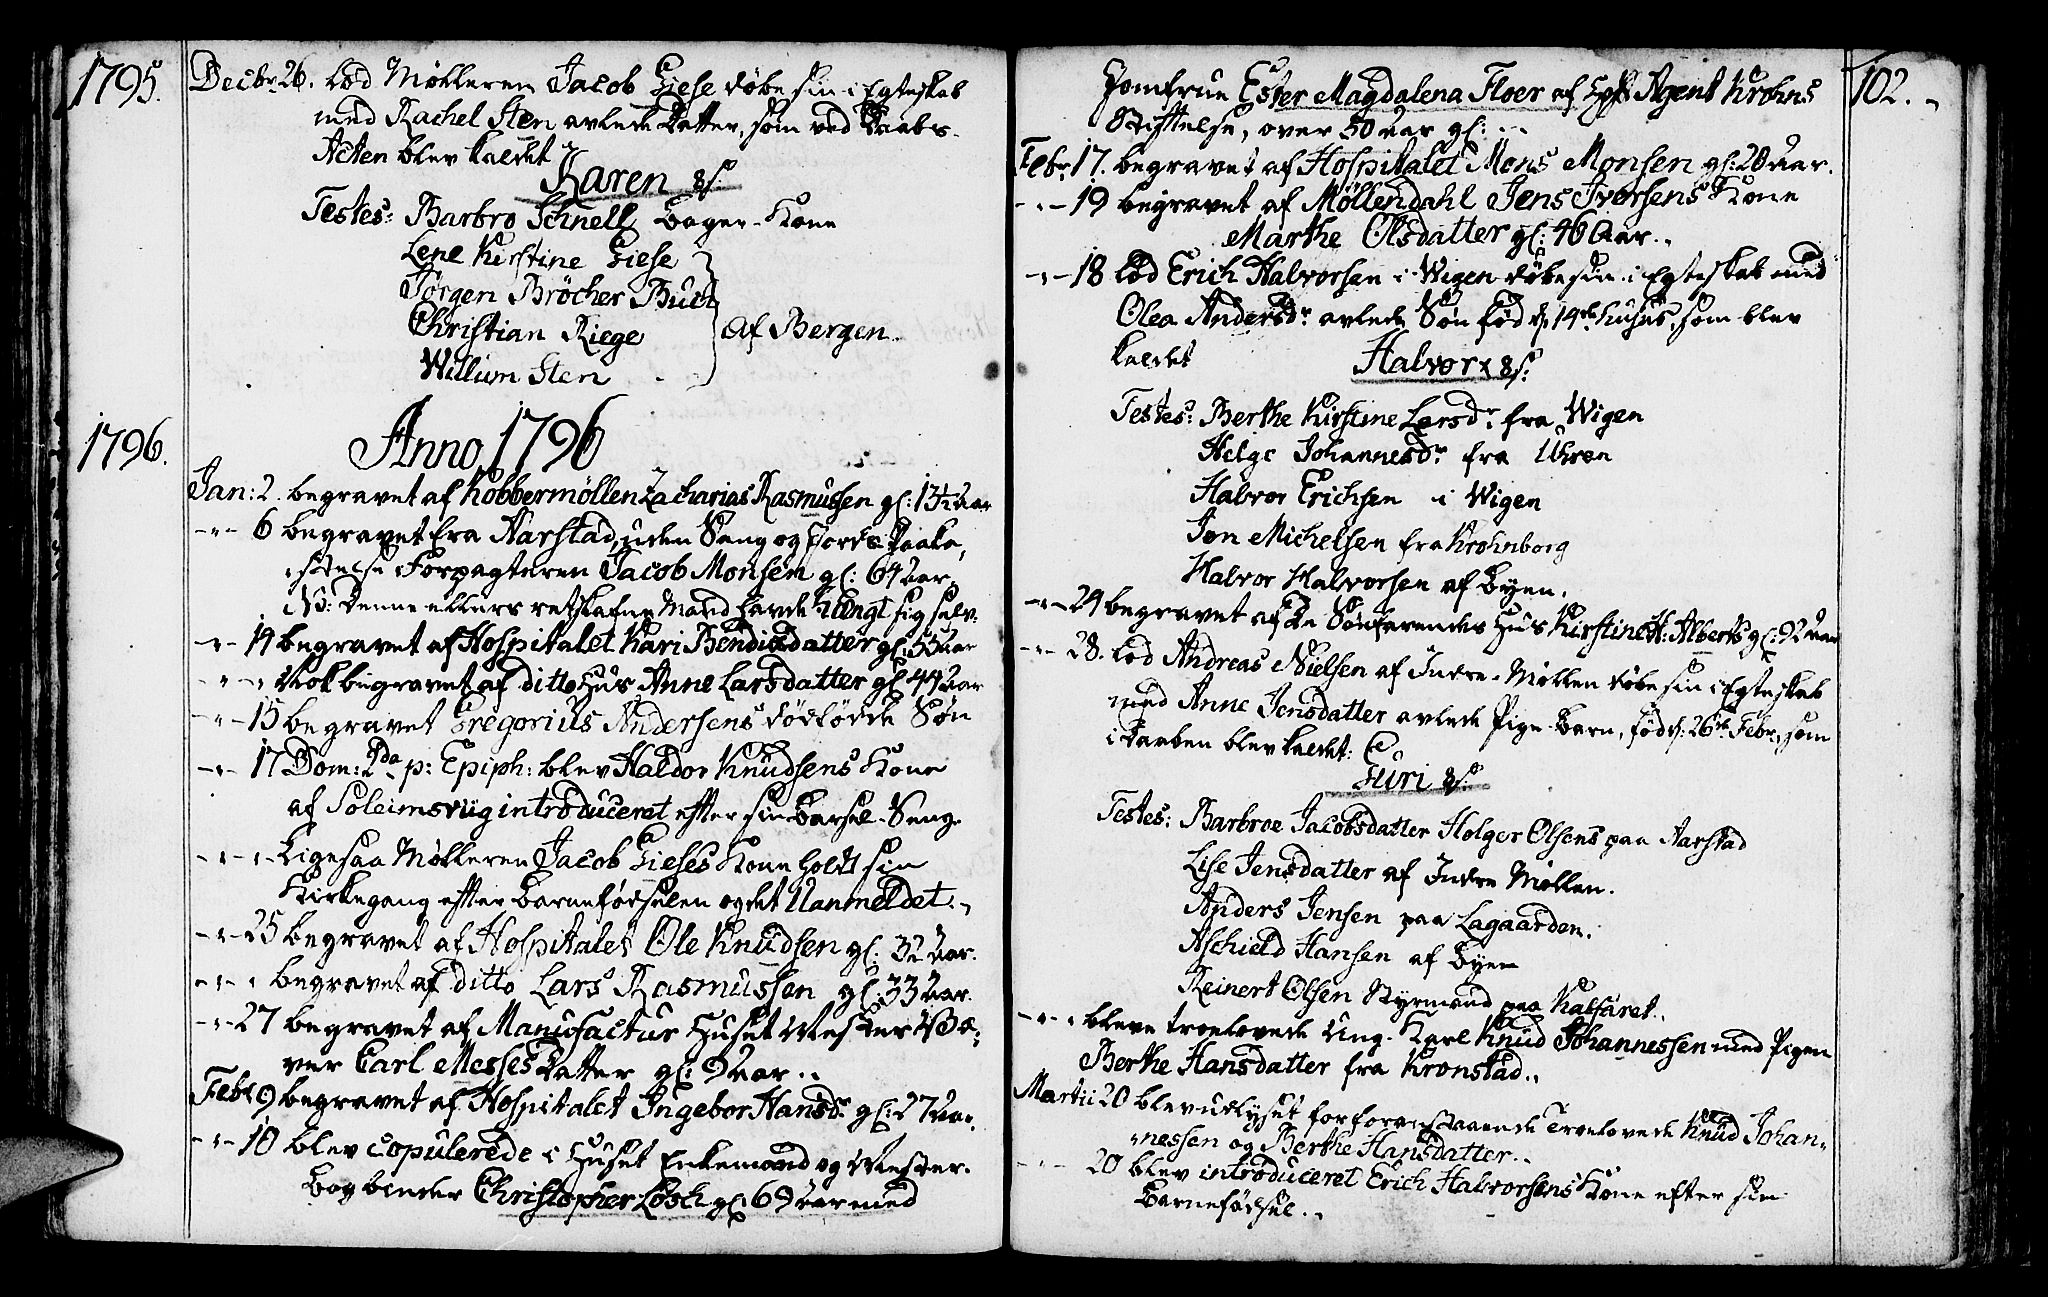 1795.
Decbr 26. lod Mølleren Jacob Giese døbe sin i Egteskab
med Rachel Sten avlede Datter, som ved Daabs-
Acten blev kaldet
Karen
Testes: Barbro Schnell Bager-Kone
Lene Kirstine Giese
Jørgen Bröcher Buch
Christian Riege
af Bergen.
Willum Sten
1796.
Anno 1796
Jan: 2. begravet af Kobbermöllen Zacharias Rasmussen gl: 13½ Aar
6 begravet fra Aarstad, uden Sang og Jords Paaka,
stelse Forpagteren Jacob Monsen gl: 64 Aar.
NB: Denne ellers retskafne Mand havde hængt sig selv.
14 begravet af Hospitalet Kari Bendicsdatter gl: 55 Aar
Nok begravet af ditto Hus Anne Larsdatter gl 44 Aar
15 begravet Gregorius Andersens dödfödde Søn
17 Dom: 2da p: Epiph: blev Haldor Knudsens Kone
af Soleimsviig introduceret efter sin Barsel-Seng.
Ligesaa Mølleren Jacob Gieses Kone holdt sin
Kirkegang efter Barnefødselen og det Uanmeldet.
25 begravet af Hospitalet Ole Knudsen gl: 32 Aar.
begravet af ditto Lars Rasmussen gl: 33 Aar.
27 begravet af Manufactur Huset Mester Væ-
ver Carl Messes Datter gl: 9 Aar..
Febr 9 begravet af Hospitalet Ingebor Hansdr gl: 27 Aar.
10 blev copulerede i Huset Enkemand og Mester
Bogbinder Christopher Losch gl: 69 Aar med
102.
Jomfrue Ester Magdalena Floer af Agent Krohns
Stiftelse, over 50 aar gl:
Febr: 17. begravet af Hospitalet Mons Monsen gl: 20 Aar.
19 begravet af Möllendahl Jens Iversens Kone
Marthe Olsdatter gl: 46 Aar..
18 lod Erich Halvorsen i Wigen døbe sin i Egteskab med
Olea Andersdr avlede Søn fød d. 14de hujus, som blev
kaldet
Halvor
Testes: Berthe Kirstine Larsdr fra Wigen
Helge Johannesdr fra Uhren
Halvor Erichsen i Wigen
Jon Michelsen fra Krohnborg
Halvor Halvorsen af Byen.
24 begravet af De Søefarendes Hus Kirstine H: Alberts gl: 92 Aar
28. lod Andreas Nielsen af Indre-Møllen døbe sin i Egteskab
med Anne Jensdatter avlede Pige-Barn, fød d: 26de Febr., som
i Daaben blev kaldet:
Guri
Testes: Barbroe Jacobsdatter Holger Olsens paa Aarstad
Lise Jensdatter af Indre Møllen.
Anders Jensen paa Lagaarden.
Aschield Hansen af Byen
Reinert Olsen Styrmand paa Kalfaret..
bleve troelovede Ung-Karl Knud Johannessen med Pigen
Berthe Hansdatter fra Kronstad..
Martii 20 blev udlyset for foranstaaende Troelovede Knud Johan-
nessen og Berthe Hansdatter..
20 blev introduceret Erich Halvorsens Kone efter sin
Barnefødsel..